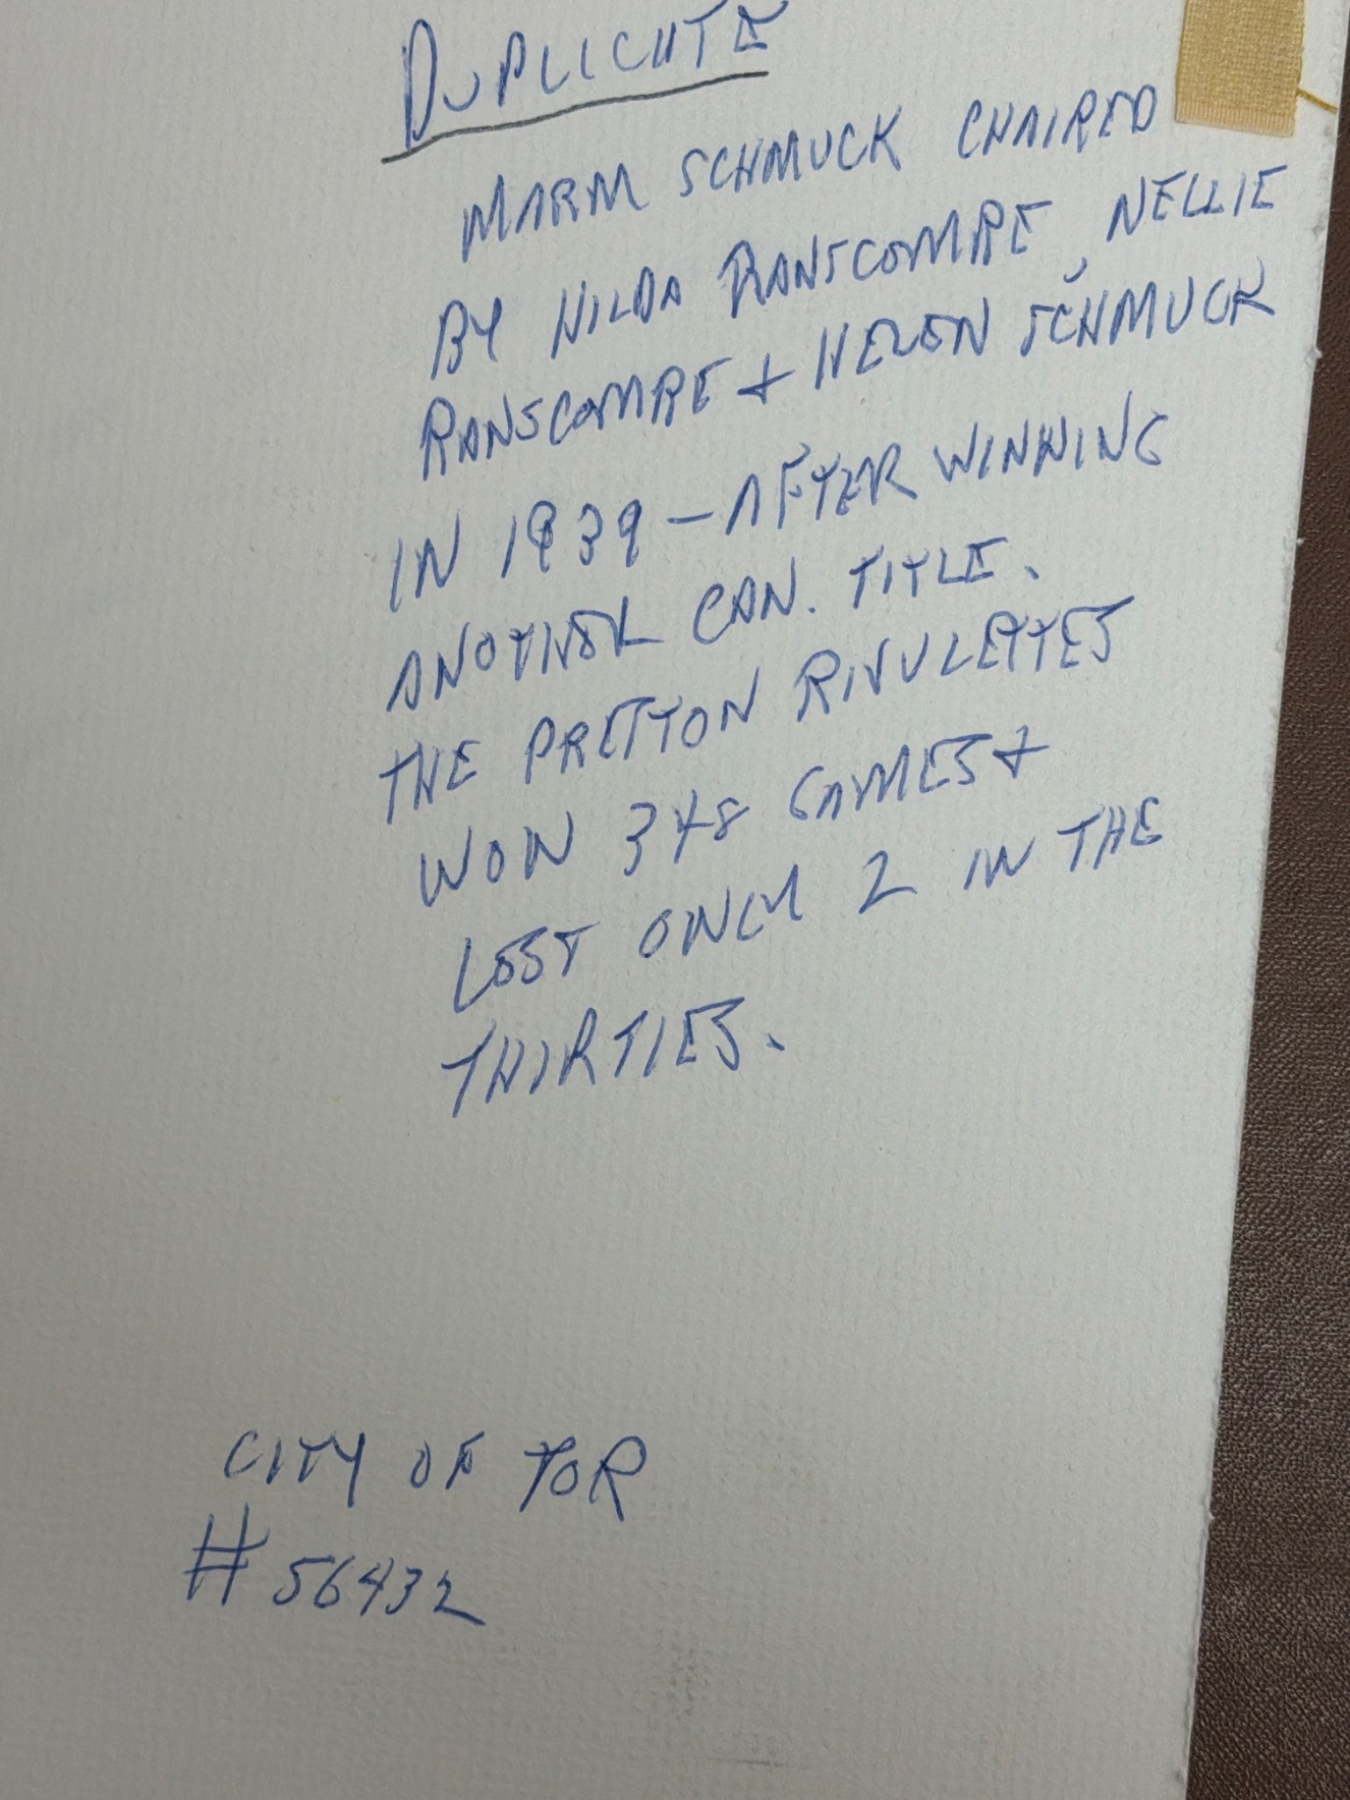 DUPLICATE
MARM SCHMUCK CHAIRED
BY HILDA RANSCOMBE, NELLIE
RANSCOMBE + HELEN SCHMUCK
IN 1939 - AFTER WINNING
ANOTHER CAN. TITLE.
THE PRESTON RIVULETTES
WON 348 GAMES +
LOST ONLY 2 IN THE
THIRTIES.
CITY OF TOR
# 56432